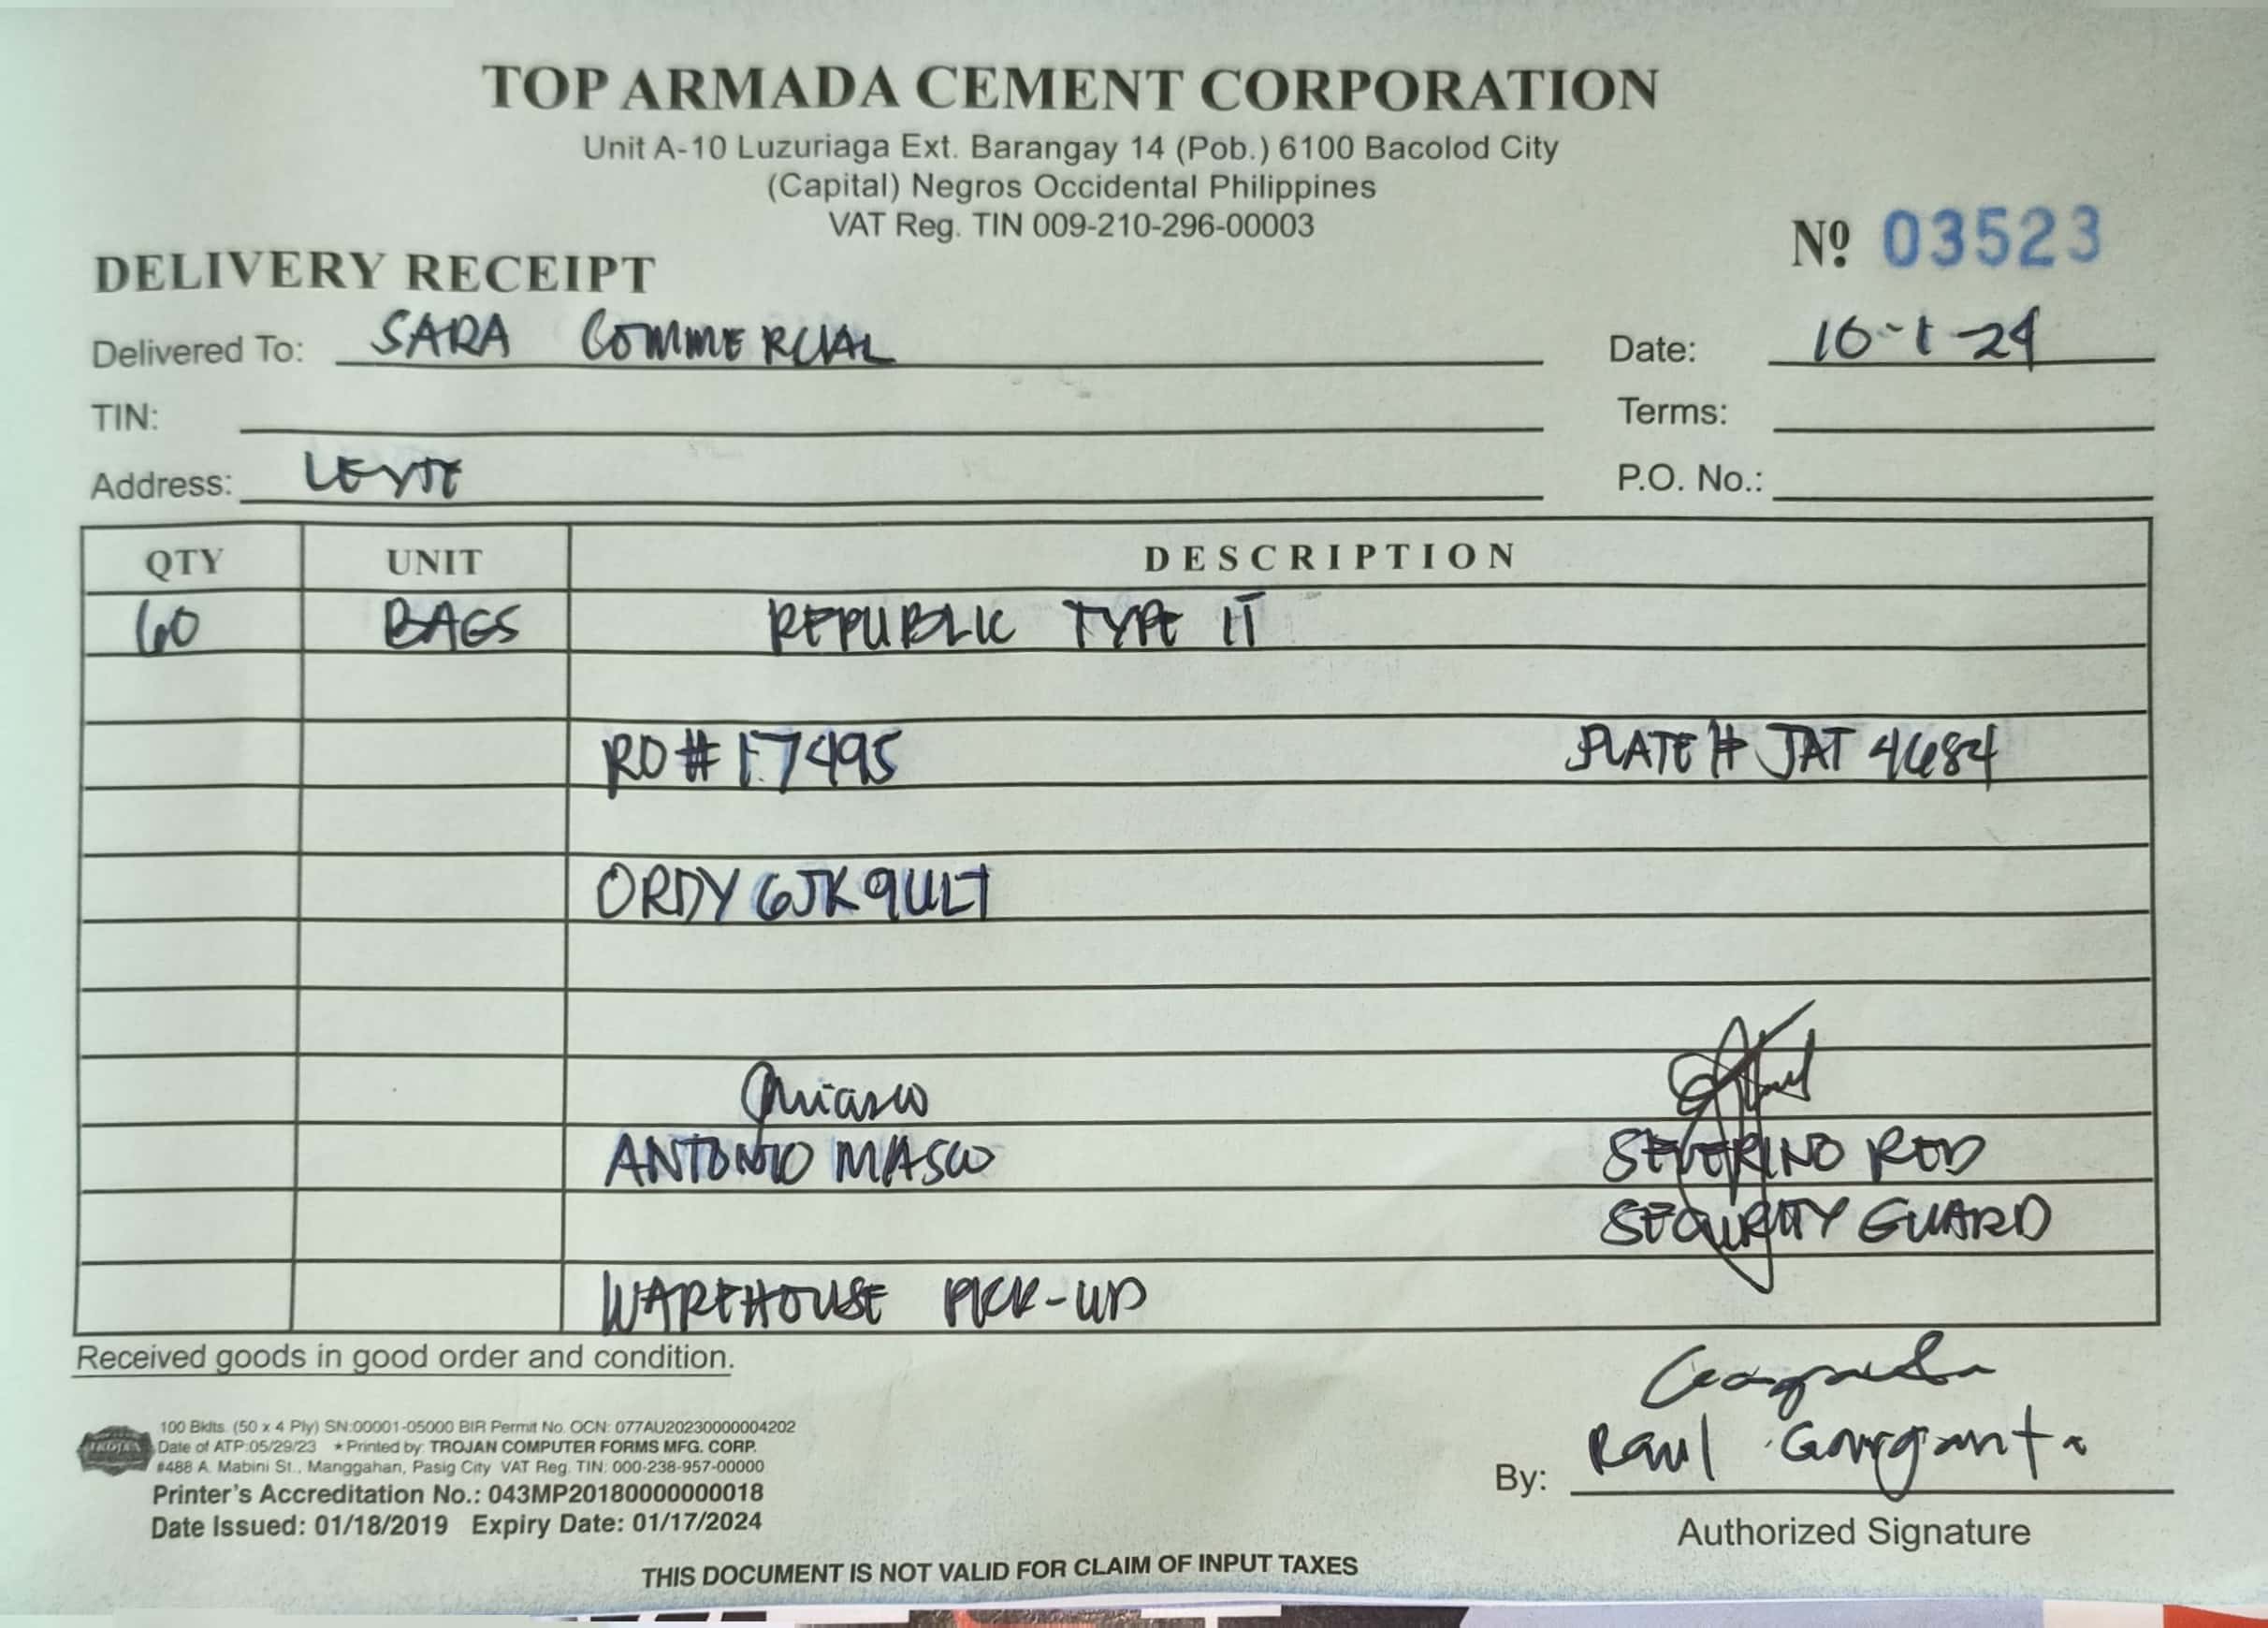 TOP ARMADA CEMENT CORPORATION
Unit A-10 Luzuriaga Ext. Barangay 14 (Pob.) 6100 Bacolod City
(Capital) Negros Occidental Philippines
VAT Reg. TIN 009-210-296-00003
Nº 03523
DELIVERY RECEIPT
Delivered To: SARA COMMERCIAL Date: 10-1-24
TIN: Terms:
Address: LEYTE P.O. No.:
QTY UNIT DESCRIPTION
60 BAGS REPUBLIC TYPE 1T
RO # 17495 PLATE # JAT 4684
ORDY6JK9ULT
ANTONIO MASCO SEVERINO RED
SECURITY GUARD
WAREHOUSE PICK-UP
Received goods in good order and condition.
100 Bklts. (50 x 4 Ply) SN:00001-05000 BIR Permit No. OCN: 077AU20230000004202
TROJAN Date of ATP:05/29/23 * Printed by: TROJAN COMPUTER FORMS MFG. CORP.
#488 A. Mabini St., Manggahan, Pasig City VAT Reg. TIN: 000-238-957-00000
Printer's Accreditation No.: 043MP20180000000018
Date Issued: 01/18/2019 Expiry Date: 01/17/2024
By: Raul Garganta
Authorized Signature
THIS DOCUMENT IS NOT VALID FOR CLAIM OF INPUT TAXES